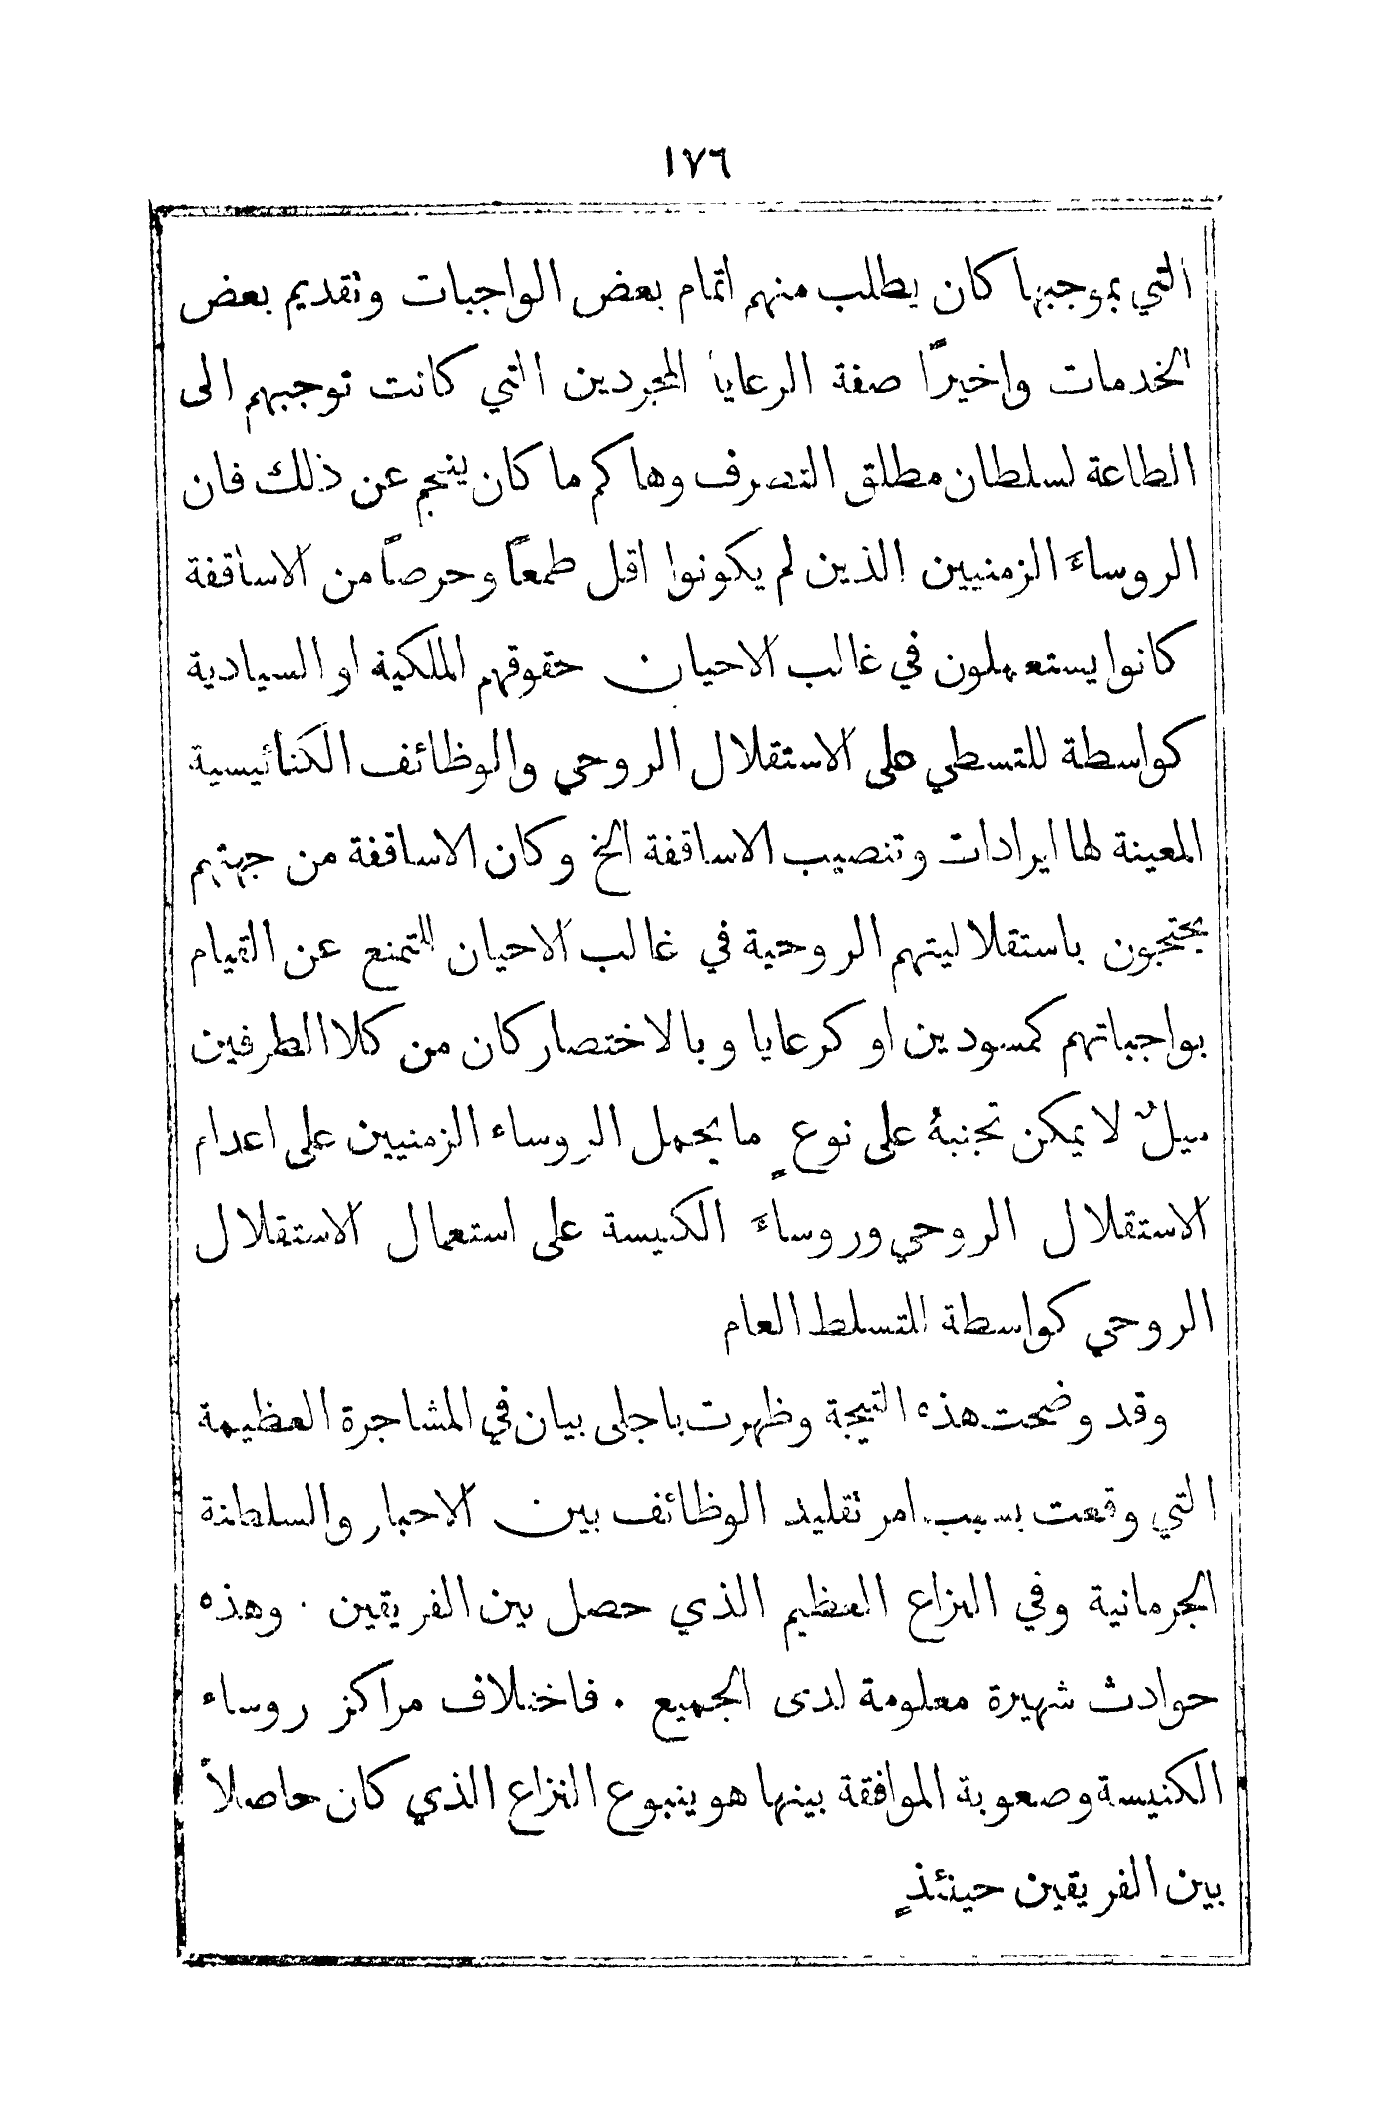 ١٧٦
التي بموجبها كان يطلب منهم اتمام بعض الواجبات وتقديم بعض
الخدمات واخيرًا صفة الرعايا المجردين التي كانت توجبهم الى
الطاعة لسلطان مطلق التصرف وهاكم ما كان ينجم عن ذلك فان
الروساءَ الزمنيين الذين لم يكونوا اقل طمعًا وحرصًا من الاساقفة
كانوا يستعملون في غالب الاحيان حقوقهم الملكية او السيادية
كواسطة للتسطي على الاستقلال الروحي والوظائف الكنائيسية
المعينة لها ايرادات وتنصيب الاساقفة الخ وكان الاساقفة من جهتهم
يحتجون باستقلاليتهم الروحية في غالب الاحيان للتمنع عن القيام
بواجباتهم كمسودين او كرعايا وبالاختصار كان من كلا الطرفين
ميلٌ لا يمكن تجنبهُ على نوعٍ ما يحمل الروساء الزمنيين على اعدام
الاستقلال الروحي وروساءَ الكنيسة على استعمال الاستقلال
الروحي كواسطة للتسلط العام
وقد وضحت هذه النتيجة وظهرت باجلى بيان في المشاجرة العظيمة
التي وقعت بسبب امر تقليد الوظائف بين الاحبار والسلطنة
الجرمانية وفي النزاع العظيم الذي حصل بين الفريقين . وهذه
حوادث شهيرة معلومة لدى الجميع . فاختلاف مراكز روساء
الكنيسة وصعوبة الموافقة بينها هو ينبوع النزاع الذي كان حاصلاً
بين الفريقين حينئذٍ